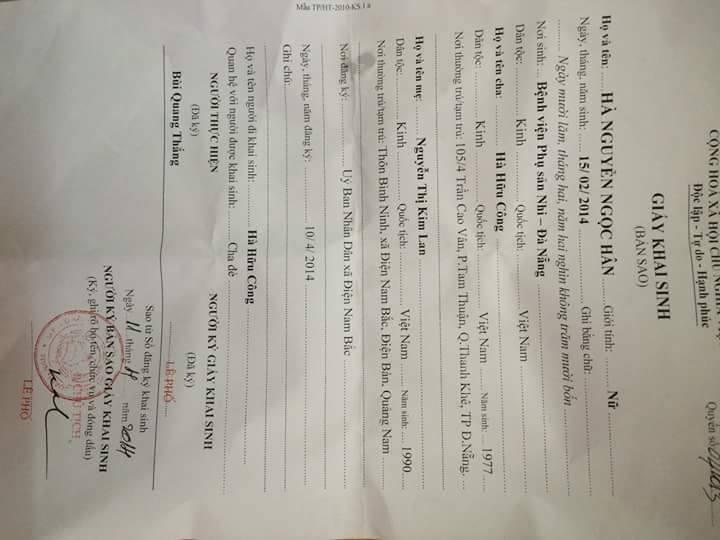 Mẫu TP/HT-2010-KS.1.a
CỘNG HÒA XÃ HỘI CHỦ NGHĨA
Độc lập - Tự do - Hạnh phúc
Quyển số
GIẤY KHAI SINH
(BẢN SAO)
Họ và tên: HÀ NGUYỄN NGỌC HÂN Giới tính: Nữ
Ngày, tháng, năm sinh: 15/ 02/ 2014 Ghi bằng chữ:
Ngày mười lăm, tháng hai, năm hai nghìn không trăm mười bốn
Nơi sinh: Bệnh viện Phụ sản Nhi – Đà Nẵng
Dân tộc: Kinh Quốc tịch: Việt Nam
Họ và tên cha: Hà Hữu Công
Dân tộc: Kinh Quốc tịch: Việt Nam Năm sinh: 1977
Nơi thường trú/tạm trú: 105/4 Trần Cao Vân, P.Tam Thuận, Q.Thanh Khê, TP Đ.Nẵng.
Họ và tên mẹ: Nguyễn Thị Kim Lan
Dân tộc: Kinh Quốc tịch: Việt Nam Năm sinh: 1990
Nơi thường trú/tạm trú: Thôn Bình Ninh, xã Điện Nam Bắc, Điện Bàn, Quảng Nam
Nơi đăng ký: Uỷ Ban Nhân Dân xã Điện Nam Bắc
Ngày, tháng, năm đăng ký: 10/ 4/ 2014
Ghi chú:
Họ và tên người đi khai sinh: Hà Hữu Công
Quan hệ với người được khai sinh: Cha đẻ
NGƯỜI THỰC HIỆN NGƯỜI KÝ GIẤY KHAI SINH
(Đã ký) (Đã ký)
Bùi Quang Thắng LÊ PHỔ
Sao từ Sổ đăng ký khai sinh
Ngày 11 tháng 4 năm 2014
NGƯỜI KÝ BẢN SAO GIẤY KHAI SINH
(Ký, ghi rõ họ tên, chức vụ và đóng dấu)
CHỦ TỊCH
LÊ PHỔ